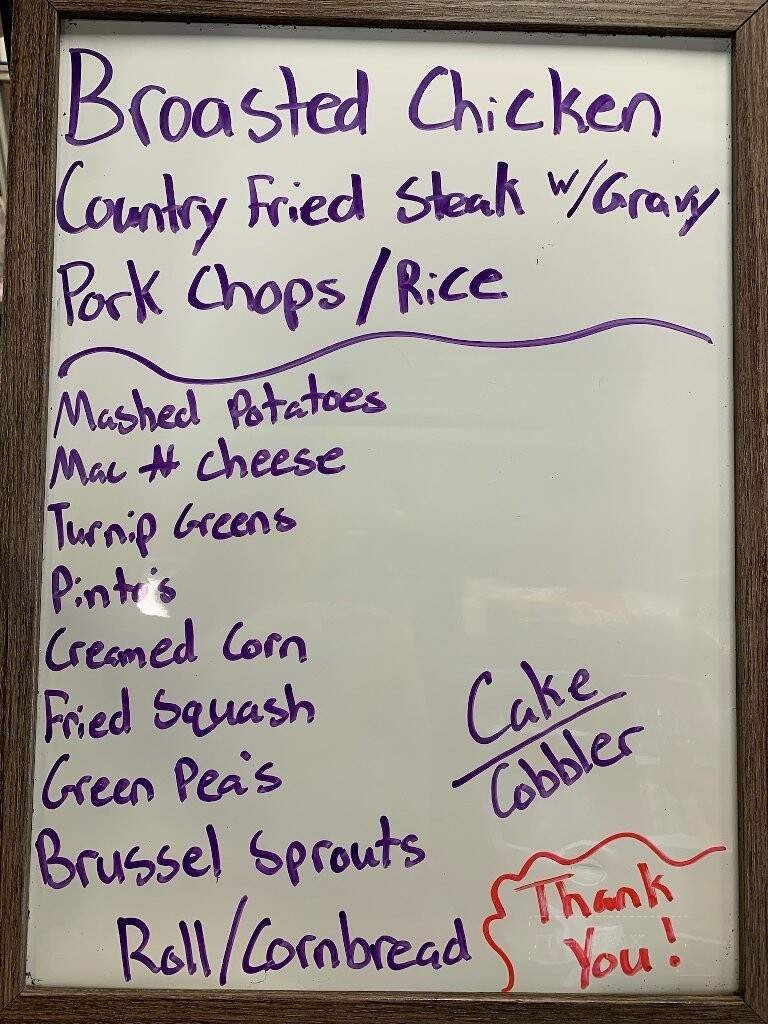 Broasted Chicken
Country Fried Steak w/Gravy
Pork Chops/Rice
Mashed Potatoes
Mac N Cheese
Turnip Greens
Pinto's
Creamed Corn
Fried Squash
Green Pea's
Brussel Sprouts
Roll/Cornbread
Cake
Cobbler
Thank
You!